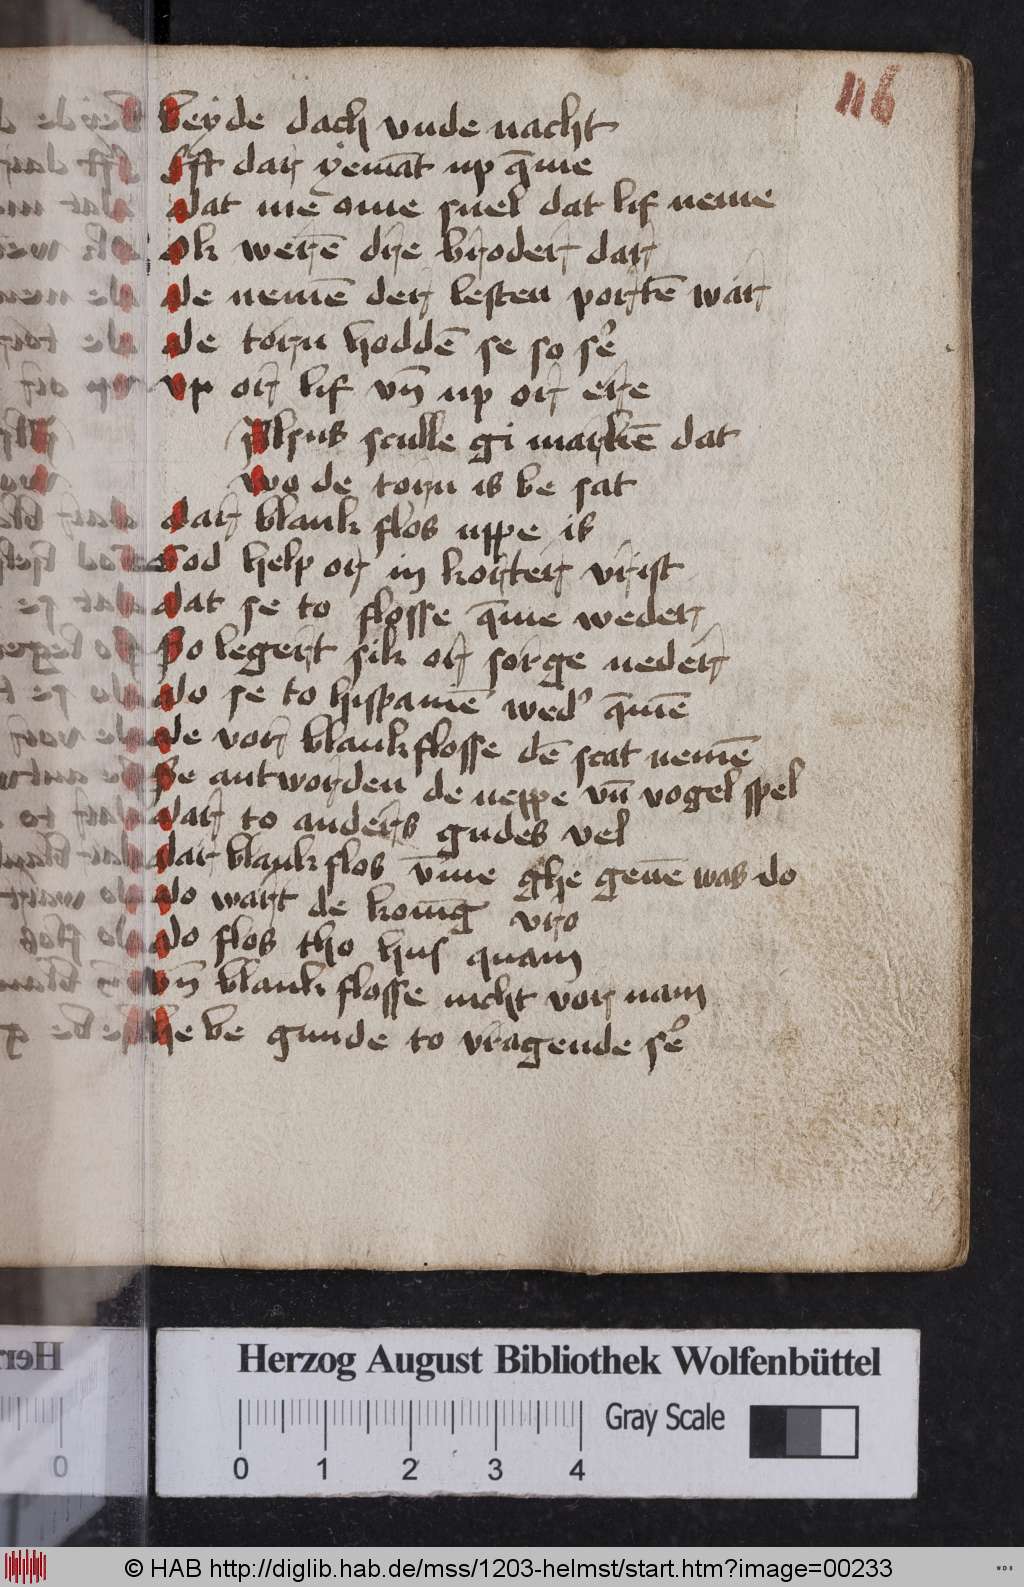 116
beyde dach vnde nacht
Efft dar yemāt up q̄me
dat mē ome snel dat lif neme
ok werē dre broder dar
de nemē der lesten portē war
de torn hoddē se so se᷑
vp or lif vn̄ up or ere
Alsus sculle gi markē dat
wo de torn is be sat
dar blank flos uppe is
God help or in korter vrist
dat se to flosse q̄me weder
So legert sik or sorge neder
do se to hispaniē wed᷑ q̄mē
de vor blankflosse dē scat nemē
Se antworden de neppe vn̄ vogel spel
dar to anders gudes vel
dar blankflos v̄me ghe geuē was do
do wart de konīg vro
do flos tho hus quam
vn̄ blank flosse nicht vor nam
he be gunde to vragende se᷑
Herzog August Bibliothek Wolfenbüttel
Gray Scale
0 1 2 3 4
© HAB http://diglib.hab.de/mss/1203-helmst/start.htm?image=00233